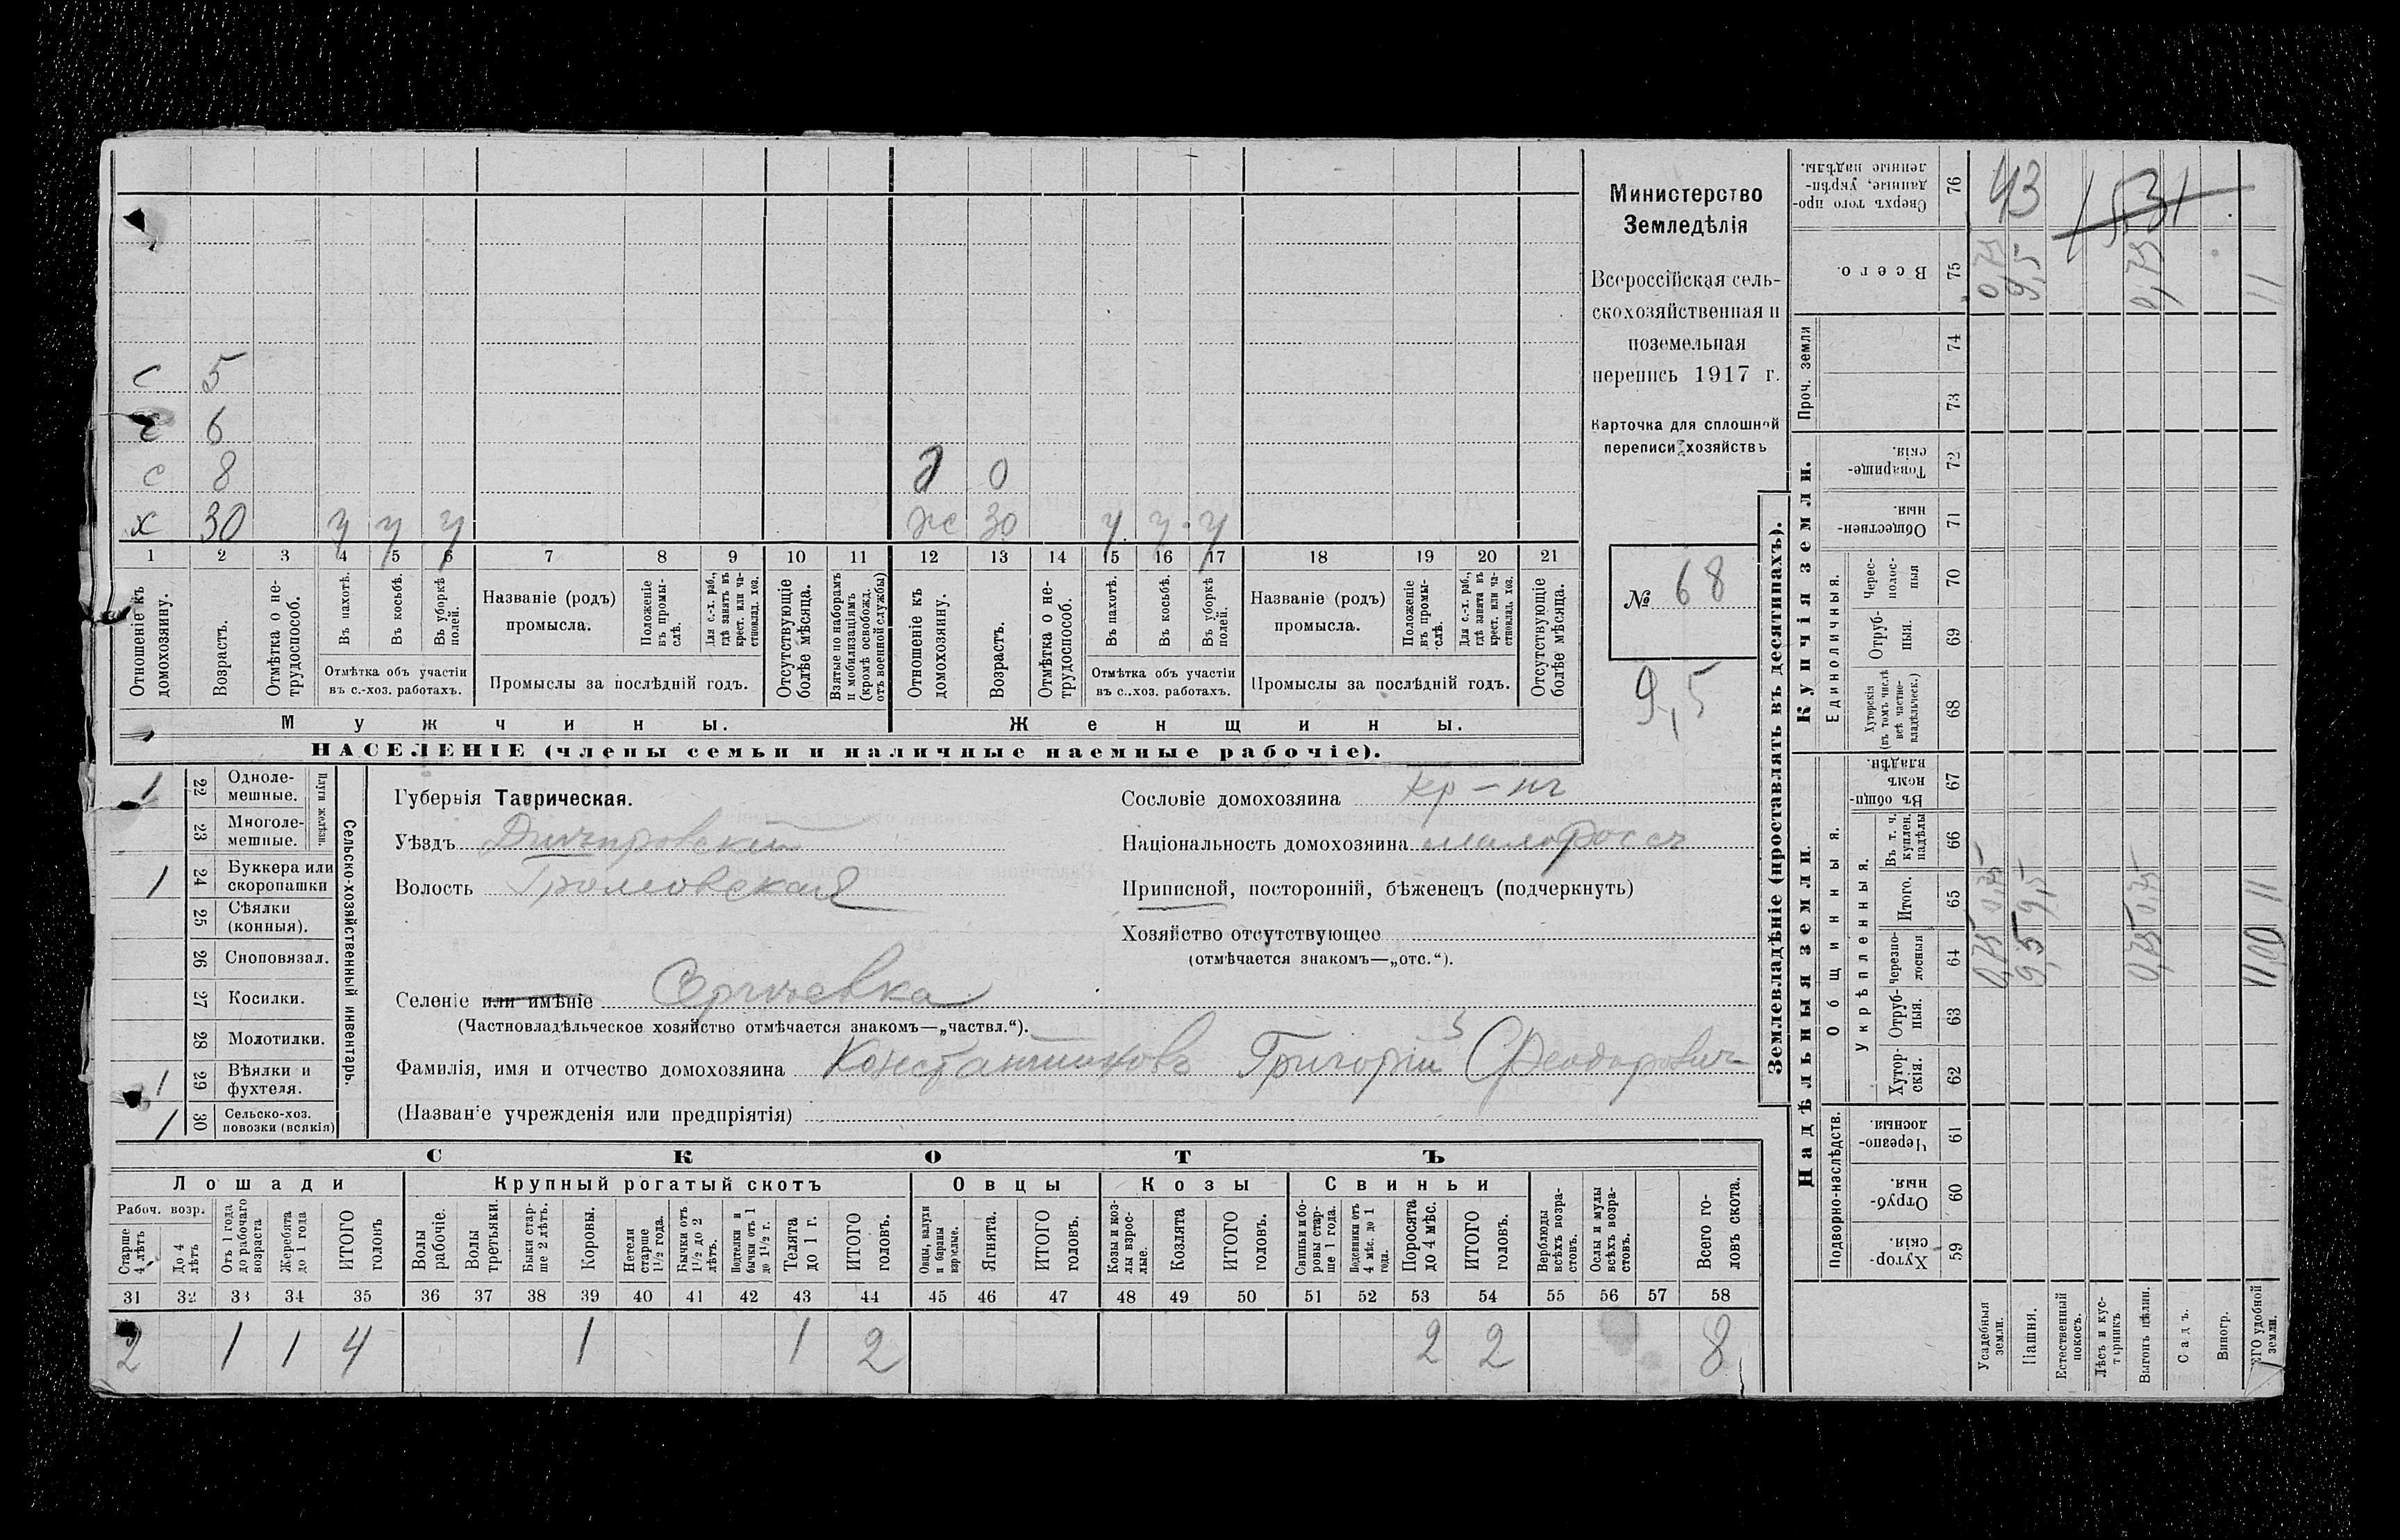 с 5
с 6
с 8 д 0
х 30 у у у ж 30 у у у
1 2 3 4 5 6 7 8 9 10 11 12 13 14 15 16 17 18 19 20 21
Отношеніе къ домохозяину.
Возрастъ.
Отмѣтка о не-
трудоспособ.
Въ пахотѣ.
Въ косьбѣ.
Въ уборкѣ
полей.
Отмѣтка объ участіи
въ с.-хоз. работахъ.
Названіе (родъ)
промысла.
Положеніе
въ промы-
слѣ.
Для с.-х. раб.,
гдѣ занятъ въ
крест. или ча-
стновлад. хоз.
Промыслы за послѣдній годъ.
Отсутствующіе
болѣе мѣсяца.
Взятые по наборамъ
и мобилизаціямъ
(кромѣ освобожд.
отъ военной службы)
Отношеніе къ
домохозяину.
Возрастъ.
Отмѣтка о не-
трудоспособ.
Въ пахотѣ.
Въ косьбѣ.
Въ уборкѣ
полей.
Отмѣтка объ участіи
въ с..хоз. работахъ.
Названіе (родъ)
промысла.
Положеніе
въ промы-
слѣ.
Для с.-х. раб.,
гдѣ занята въ
крест. или ча-
стновлад. хоз.
Промыслы за послѣдній годъ.
Отсутствующіе
болѣе мѣсяца.
Мужчины. Женщины.
НАСЕЛЕНІЕ (члены семьи и наличные наемные рабочіе).
Министерство
Земледѣлія
Всероссійская сель-
скохозяйственная и
поземельная
перепись 1917 г.
Карточка для сплошной
переписи хозяйствъ
№ 68
9,5
Сельско-хозяйственный инвентарь.
Плуги желѣзн.
1 22 Одноле-
мешные.
23 Многоле-
мешные.
1 24 Буккера или
скоропашки
25 Сѣялки
(конныя).
26 Сноповязал.
27 Косилки.
28 Молотилки.
1 29 Вѣялки и
фухтеля.
1 30 Сельско-хоз.
повозки (всякія)
Губернія Таврическая.
Уѣздъ Днѣпровскій
Волость Громовская
Сословіе домохозяина кр-нъ
Національность домохозяина малоросъ
Приписной, посторонній, бѣженецъ (подчеркнуть)
Хозяйство отсутствующее
(отмѣчается знакомъ—„отс.“).
Селеніе или имѣніе Сергѣевка
(Частновладѣльческое хозяйство отмѣчается знакомъ—„частвл.“).
Фамилія, имя и отчество домохозяина Константиновъ Григорій Феодоровичъ
(Названіе учрежденія или предпріятія)
СКОТЪ
Лошади Крупный рогатый скотъ Овцы Козы Свиньи
Рабоч. возр.
Старше
4 лѣтъ
До 4
лѣтъ
Отъ 1 года
до рабочаго
возраста
Жеребята
до 1 года
ИТОГО
головъ
Волы
рабочіе.
Волы
третьяки.
Быки стар-
ше 2 лѣтъ.
Коровы.
Нетели
старше
1½ года.
Бычки отъ
1½ до 2
лѣтъ.
Подтелки и
бычки отъ 1
до 1½ г.
Телята
до 1 г.
ИТОГО
головъ.
Овцы, валухи
и бараны
взрослые.
Ягнята.
ИТОГО
головъ.
Козы и коз-
лы взрос-
лые.
Козлята
ИТОГО
головъ.
Свиньи и бо-
ровы стар-
ше 1 года.
Подсвинки отъ
4 мѣс. до 1
года.
Поросята
до 4 мѣс.
ИТОГО
головъ.
Верблюды
всѣхъ возра-
стовъ.
Ослы и мулы
всѣхъ возра-
стовъ.
Всего го-
ловъ скота.
31 32 33 34 35 36 37 38 39 40 41 42 43 44 45 46 47 48 49 50 51 52 53 54 55 56 57 58
2 1 1 4 1 1 2 2 2 8
Землевладѣніе (проставлять въ десятинахъ).
Надѣльныя земли.
Купчія земли.
Проч. земли
Подворно-наслѣдств.
Общинныя.
Укрѣпленныя.
Единоличныя.
Хутор-
скія. 59
Отруб-
ныя. 60
Черезпо-
лосныя. 61
Хутор-
скія. 62
Отруб-
ныя. 63
черезпо-
лосныя 64
Итого. 65
Въ т. ч.
куплен.
надѣлы 66
Въ общи-
номъ
владѣн. 67
Хуторскія
(въ томъ числѣ
всѣ частно-
владѣльческ.) 68
Отруб-
ныя. 69
Черес-
полос-
ныя 70
Обществен-
ныя. 71
Товарище-
скія. 72
73
74
Всего. 75
Сверхъ того про-
данные, укрѣп-
ленные надѣлы. 76
Усадебныя
земли. 0,75 0,75 0,75
Пашня. 9,5 9,5 9,5
Естественный
покосъ.
Лѣсъ и кус-
тарникъ
Выгонъ цѣлин. 0,75 0,75 0,75
Садъ.
Виногр.
ИТОГО удобной
земли. 11,00 11 11
43
1531